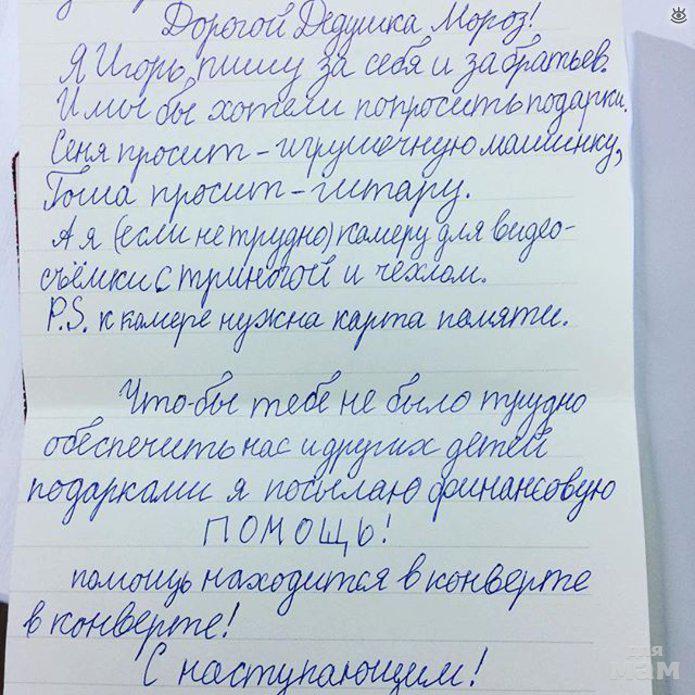 Дорогой Дедушка Мороз!
Я Игорь, пишу за себя и за братьев.
И мы бы хотели попросить подарки.
Сеня просит - игрушечную машинку,
Гоша просит - гитару.
А я (если не трудно) камеру для видео-
съёмки с триногой и чехлом.
P.S. к камере нужна карта памяти.
Что-бы тебе не было трудно
обеспечить нас и других детей
подарками я посылаю финансовую
ПОМОЩЬ!
помощь находится в конверте
в конверте!
С наступающим!
для
мам